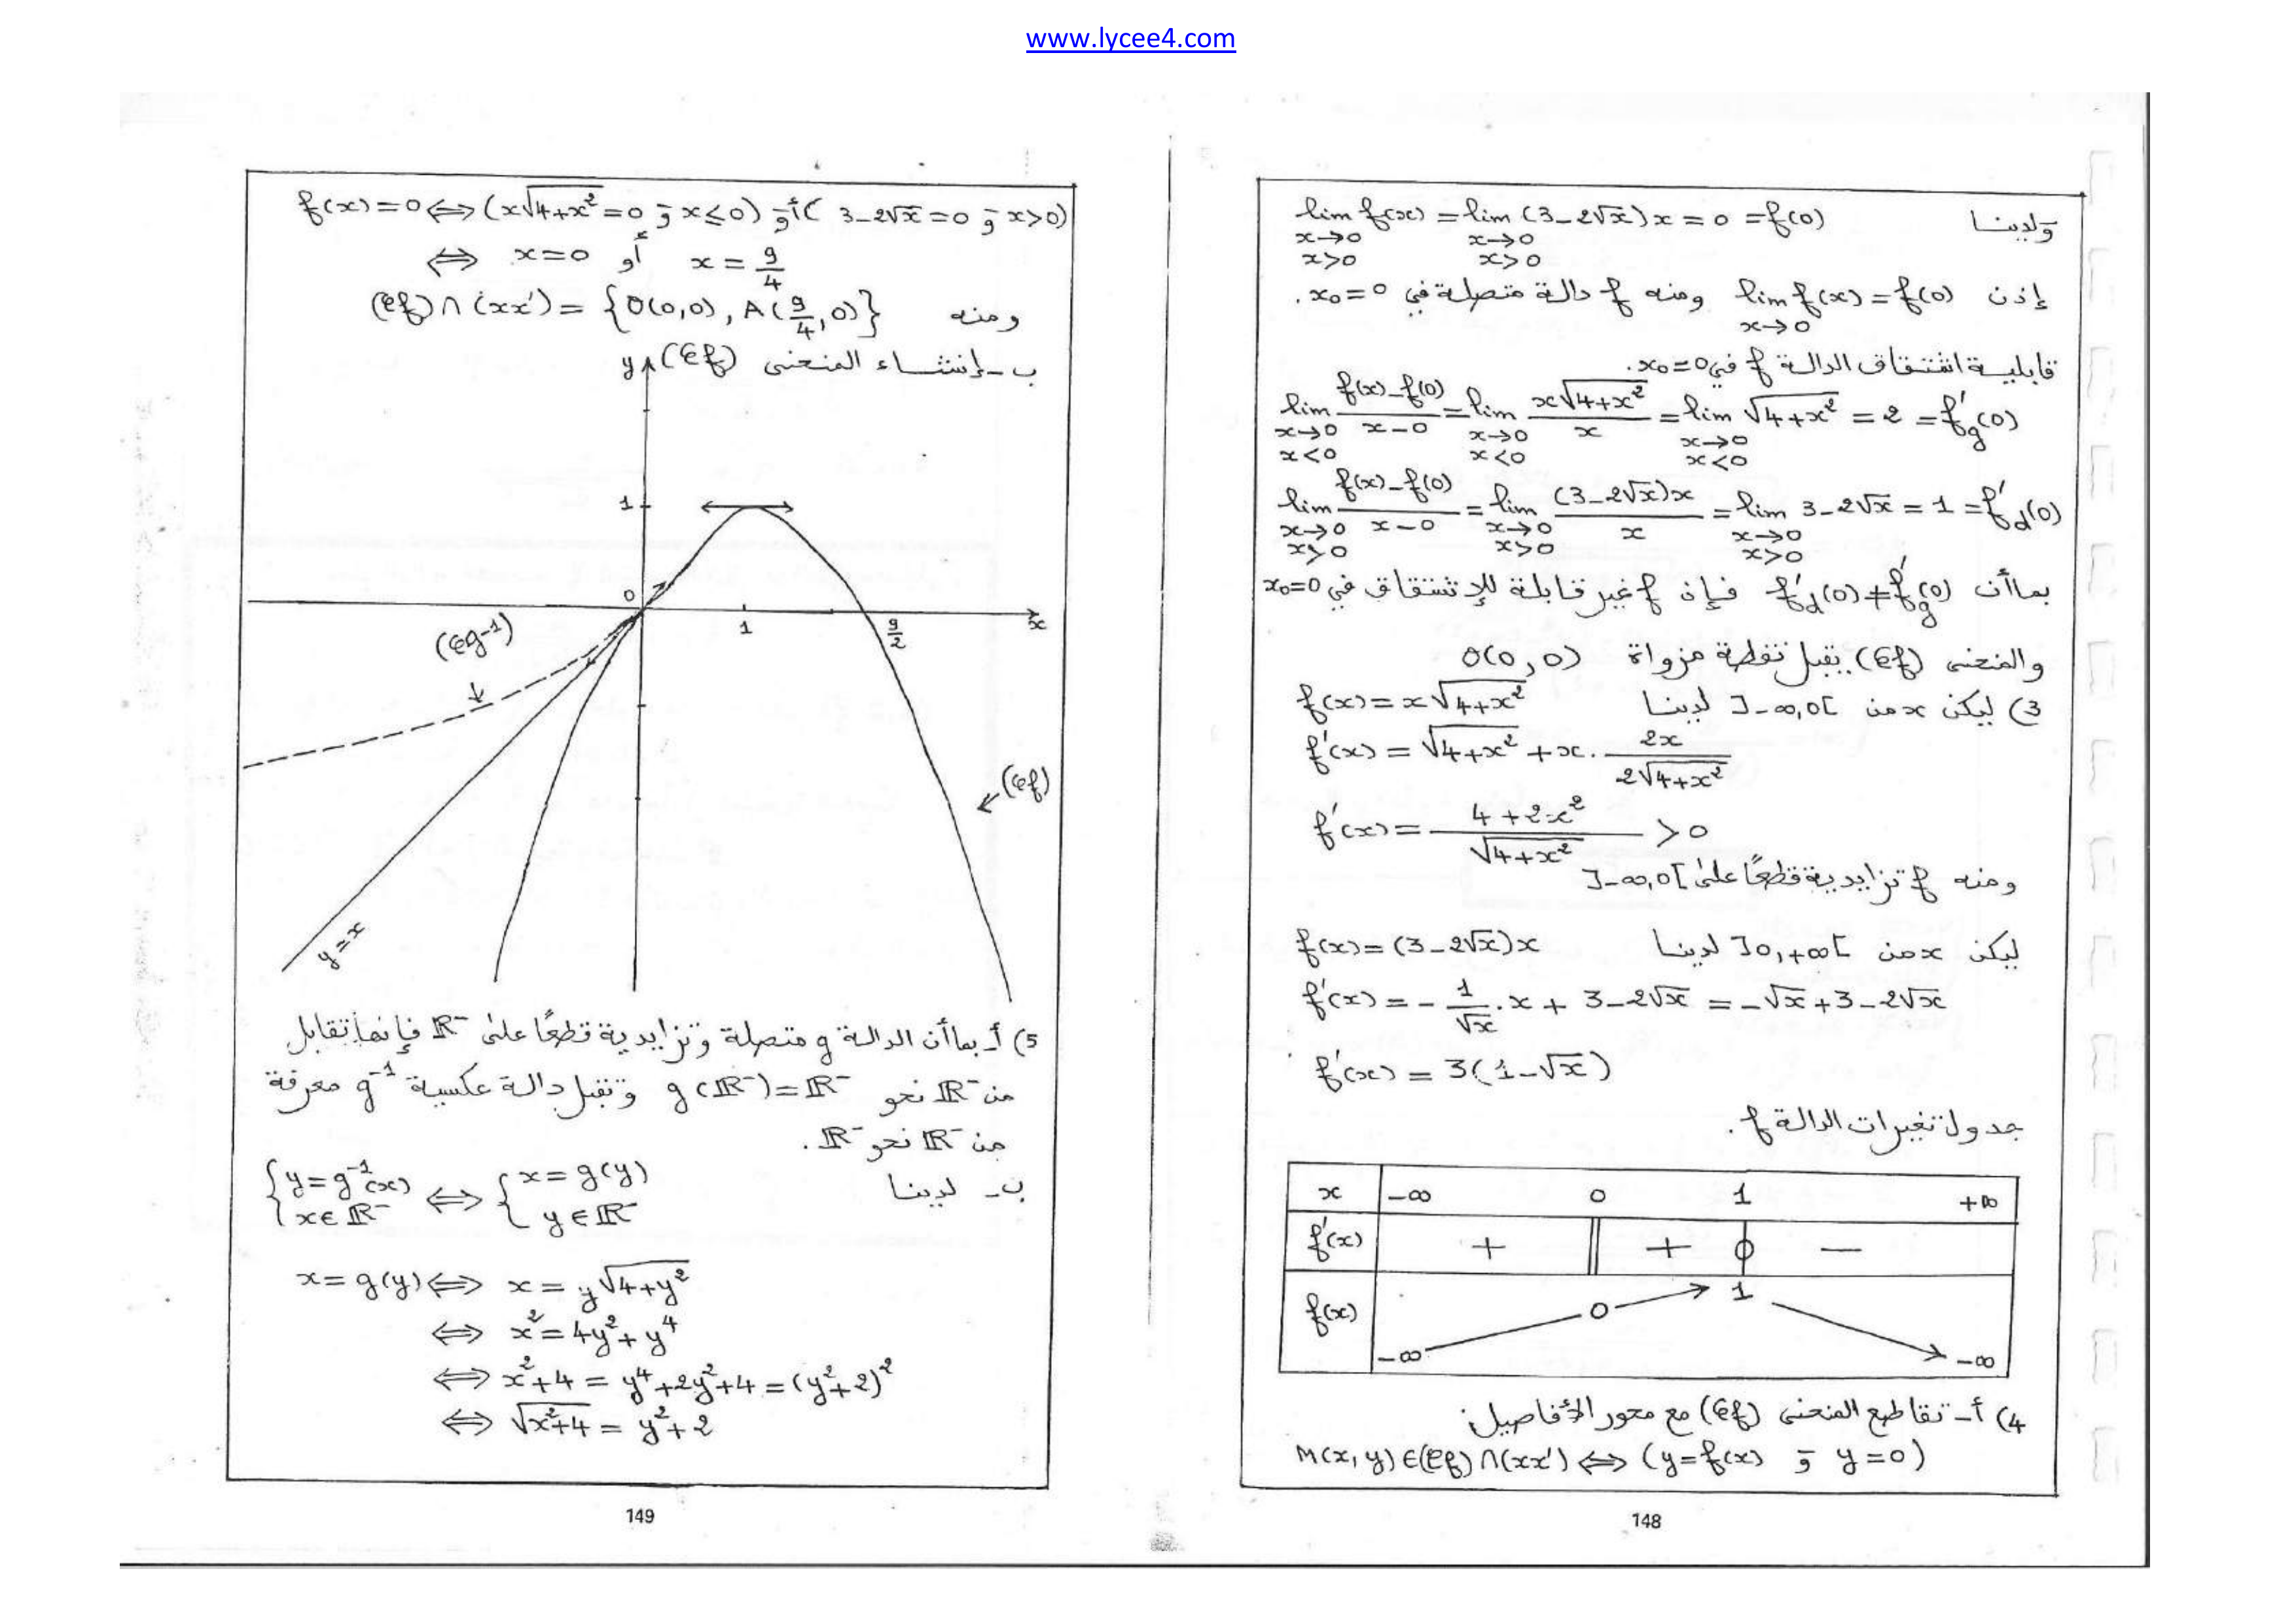 www.lycee4.com
ولدينا lim f(x) = lim (3-2√x)x = 0 = f(0)
x→0 x→0
x>0 x>0
إذن lim f(x) = f(0) ومنه f دالة متصلة في x₀=0.
x→0
قابلية اشتقاق الدالة f في x₀=0.
lim (f(x)-f(0))/(x-0) = lim (x√(4+x²))/x = lim √(4+x²) = 2 = f'g(0)
x→0 x→0 x→0
x<0 x<0 x<0
lim (f(x)-f(0))/(x-0) = lim ((3-2√x)x)/x = lim 3-2√x = 1 = f'd(0)
x→0 x→0 x→0
x>0 x>0 x>0
بما أن f'd(0)≠f'g(0) فإن f غير قابلة للإشتقاق في x₀=0
والمنحنى (Cf) يقبل نقطة مزواة O(0,0)
3) ليكن x من ]-∞,0[ لدينا f(x) = x√(4+x²)
f'(x) = √(4+x²) + x. 2x/(2√(4+x²))
f'(x) = (4+2x²)/√(4+x²) > 0
ومنه f تزايدية قطعًا على ]-∞,0[
ليكن x من ]0,+∞[ لدينا f(x) = (3-2√x)x
f'(x) = - 1/√x . x + 3-2√x = -√x+3-2√x
f'(x) = 3(1-√x)
جدول تغيرات الدالة f.
x -∞ 0 1 +∞
f'(x) + || + 0 -
f(x) -∞ 0 1 -∞
4) أ- تقاطع المنحنى (Cf) مع محور الأفاصيل:
M(x,y)∈(Cf)∩(xx') ⟺ (y=f(x) و y=0)
148
f(x)=0 ⟺ (x√(4+x²)=0 و x≤0) أو (3-2√x=0 و x>0)
⟺ x=0 أو x = 9/4
ومنه (Cf)∩(xx') = {O(0,0), A(9/4,0)}
ب- إنشاء المنحنى (Cf)
y
1
0
1
9/2
x
(Cg⁻¹)
(Cf)
y=x
5) أ- بما أن الدالة g متصلة وتزايدية قطعًا على ℝ⁻ فإنها تقابل
من ℝ⁻ نحو g(ℝ⁻)=ℝ⁻ وتقبل دالة عكسية g⁻¹ معرفة
من ℝ⁻ نحو ℝ⁻.
ب- لدينا {y=g⁻¹(x) ⟺ {x=g(y)
x∈ℝ⁻ y∈ℝ⁻
x=g(y) ⟺ x = y√(4+y²)
⟺ x² = 4y²+y⁴
⟺ x²+4 = y⁴+2y²+4 = (y²+2)²
⟺ √(x²+4) = y²+2
149